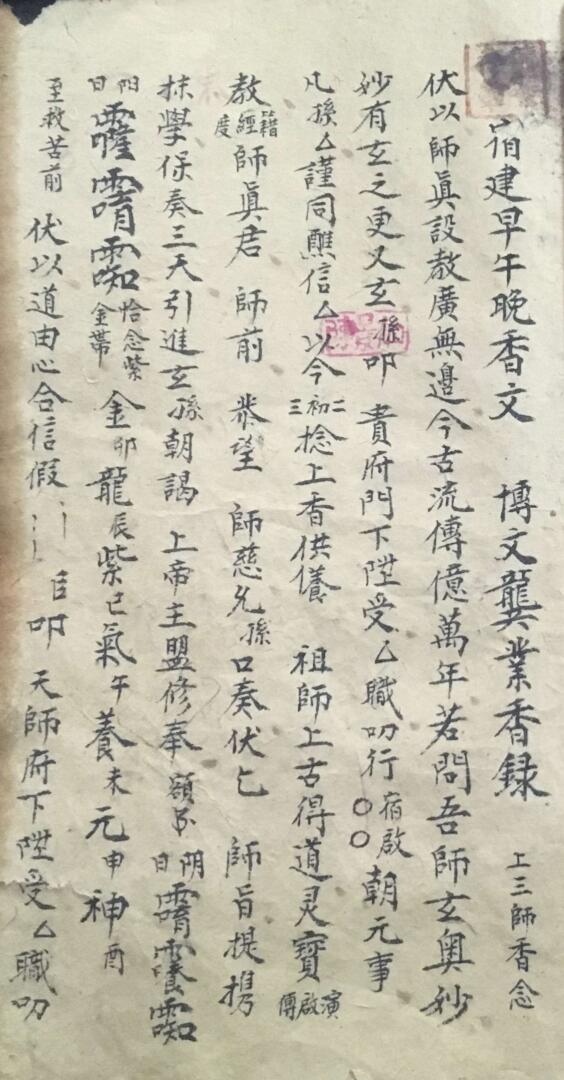 宿建早午晚香文 博文龔業香録 上三師香念
伏以師真設教廣無邊今古流傳億萬年若問吾師玄奧妙
妙有玄之更又玄孫叩 貴府門下陞受厶職叨行宿啟〇〇朝元事
凡孫厶謹同醮信厶以今二初三捻上香供養 祖師上古得道灵寶演啟傳
教籍經度師眞君 師前 恭望 師慈允孫口奏伏乞 師旨提携
抹學保奏三天引進玄孫朝謁 上帝主盟修奉 阴日
阳日 恰念紫金帶 金卯龍辰紫巳氣午養未元申神酉
至救苦前 伏以道由心合信假 臣叩 天師府下陞受厶職叨